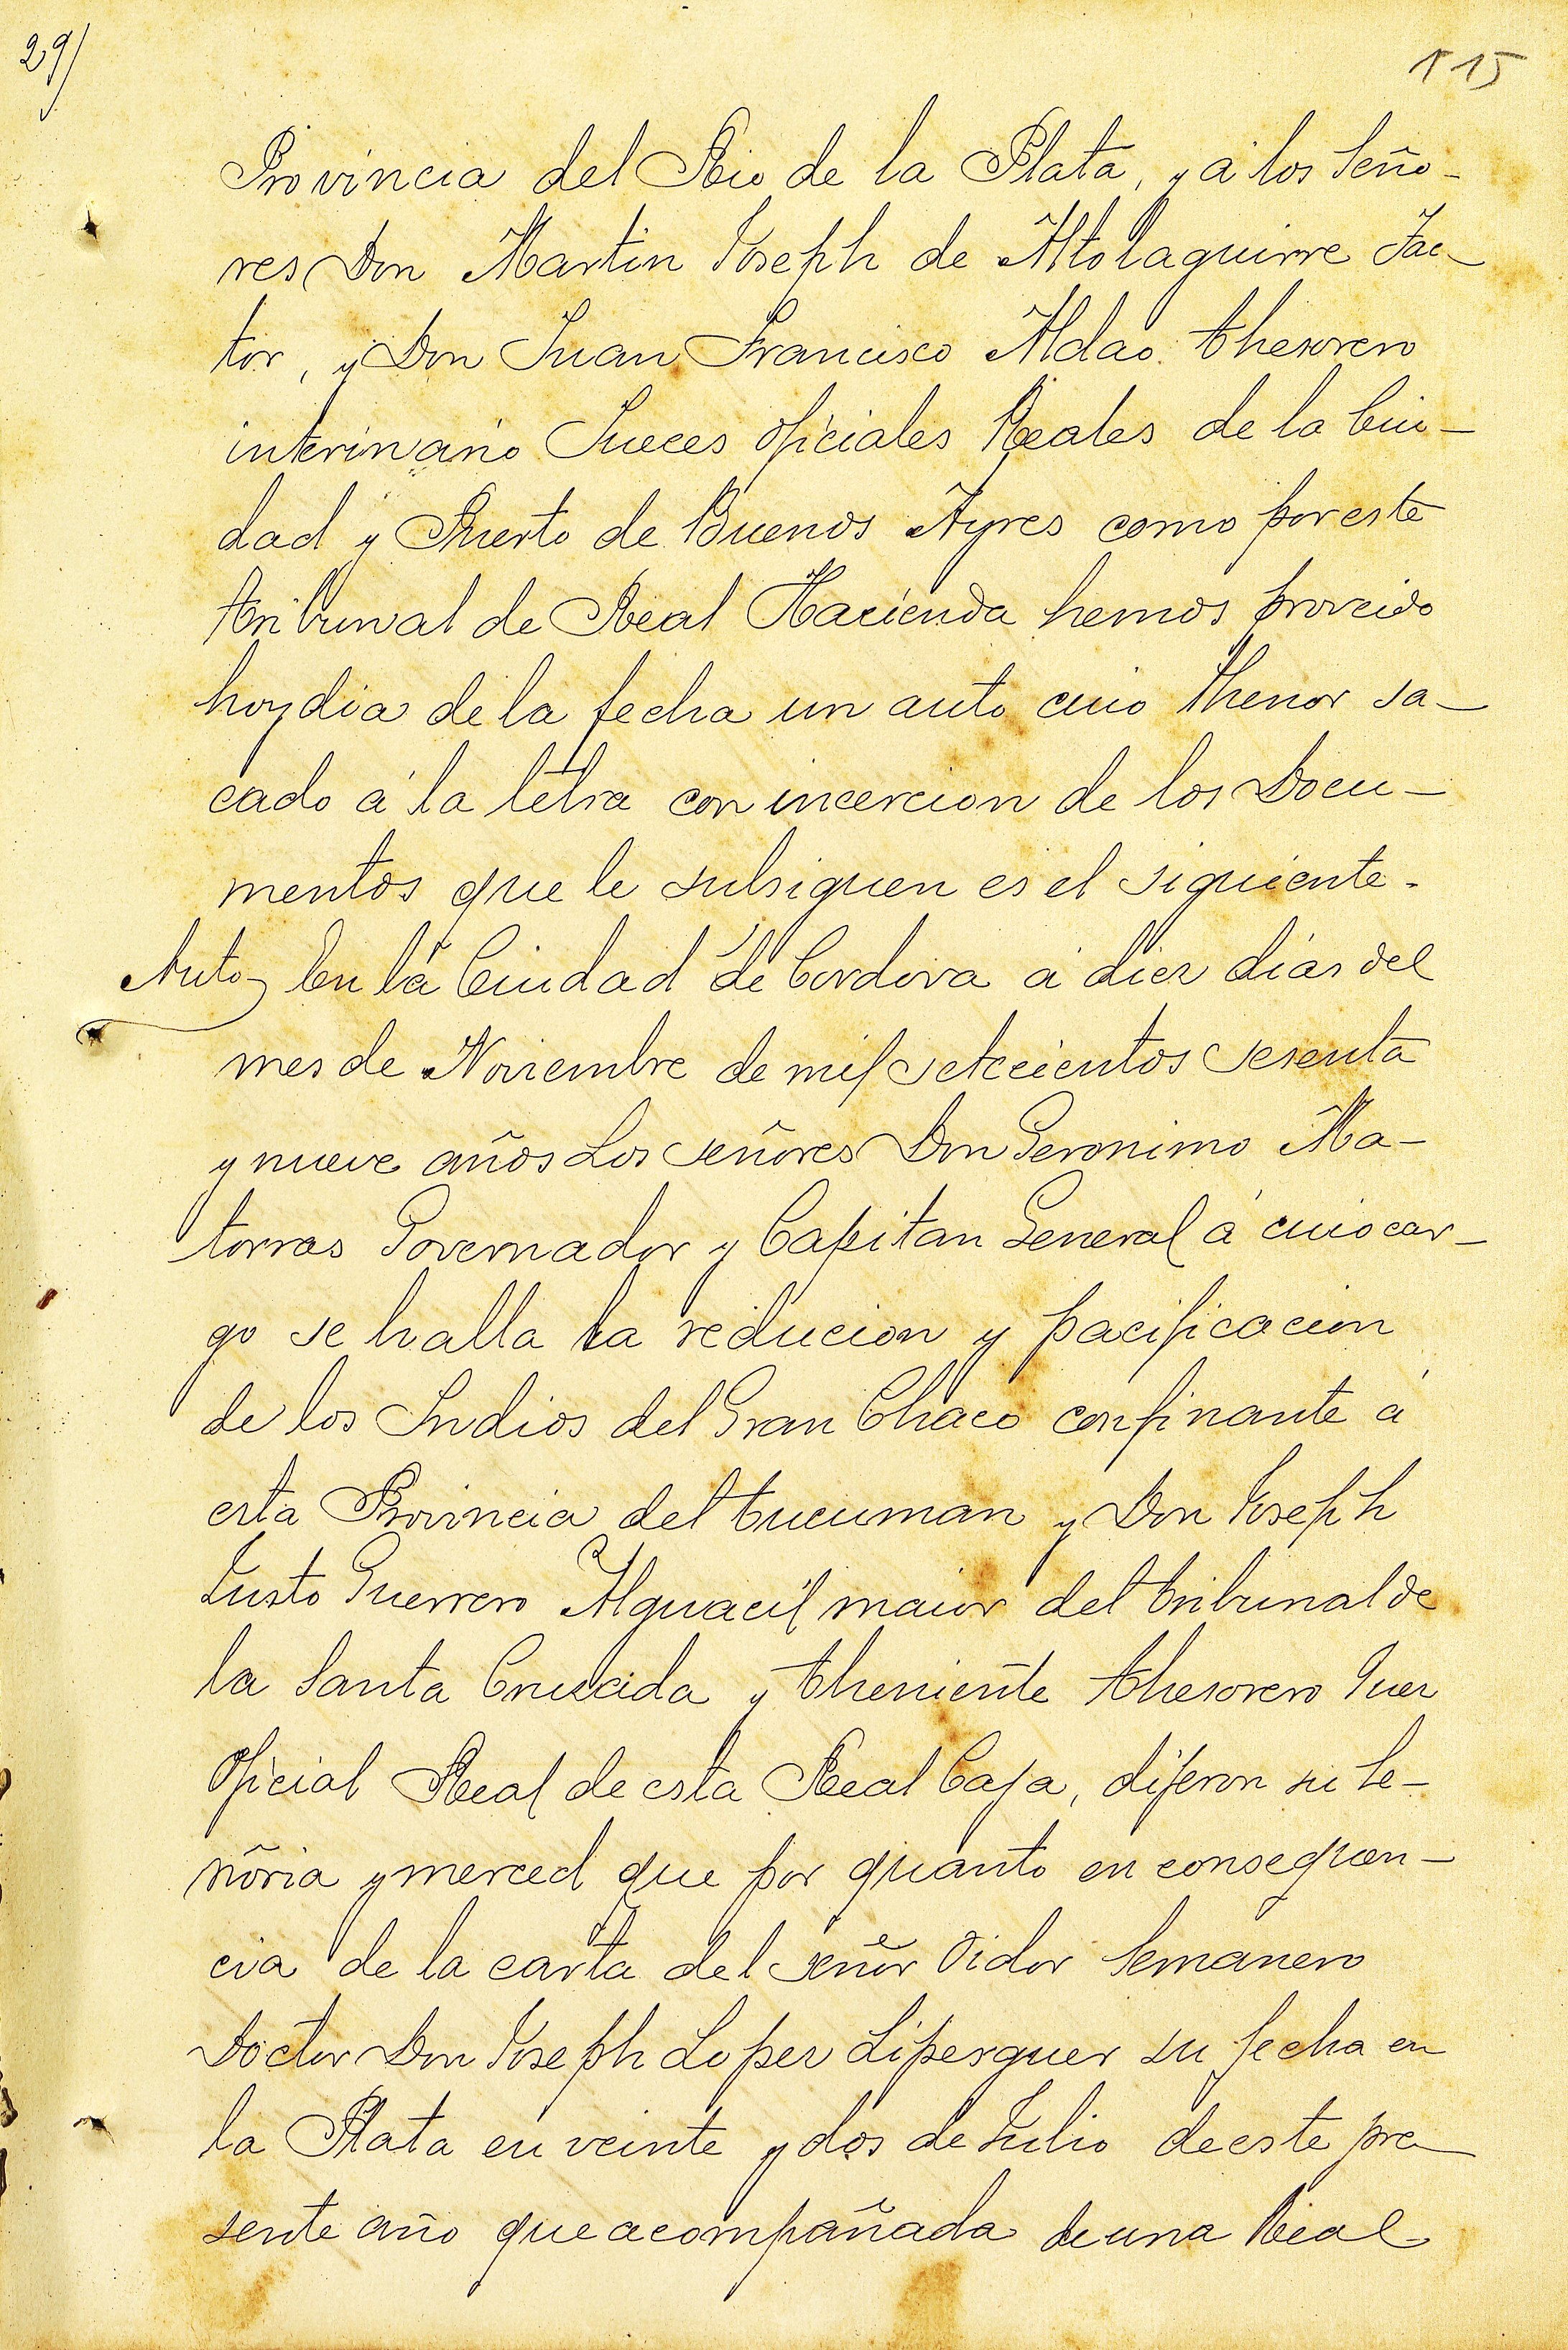 29/
115
Provincia del Rio de la Plata, y á los Seño-
res Don Martin Joseph de Altolaguirre Fac-
tor, y Don Juan Francisco Aldao Thesorero
interinario Jueces oficiales Reales de la Ciu-
dad y Puerto de Buenos Ayres como por este
tribunal de Real Hacienda hemos proveido
hoy dia de la fecha un auto cuio thenor sa-
cado á la letra con incercion de los Docu-
mentos que le subsiguen es el siguiente.
Auto En la Ciudad de Cordova á diez dias del
mes de Noviembre de mil setecientos sesenta
y nueve años Los señores Don Geronimo Ma-
torras Governador y Capitan General á cuio car-
go se halla la reducion y pacificacion
de los Indios del Gran Chaco confinante á
esta Provincia del tucuman y Don Joseph
Justo Guerrero Alguacil maior del tribunal de
la Santa Cruzada y theniente thesorero Juez
oficial Real de esta Real Caja, dijeron su Se-
ñoria y merced que por quanto en consequen-
cia de la carta del señor Oidor Semanero
Doctor Don Joseph Lopez Lipersguer su fecha en
la Plata en veinte y dos de Julio de este pre
sente año que acompañada de una Real